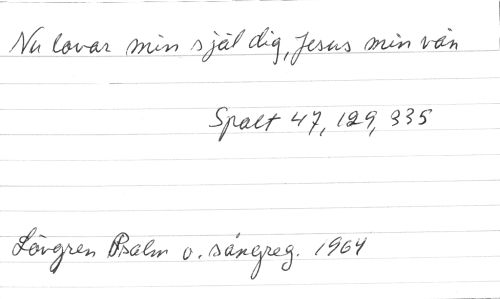 Nu lovar min själ dig, Jesus min vän
Spalt 47, 129, 335
Lövgren Psalm o. sångreg. 1964